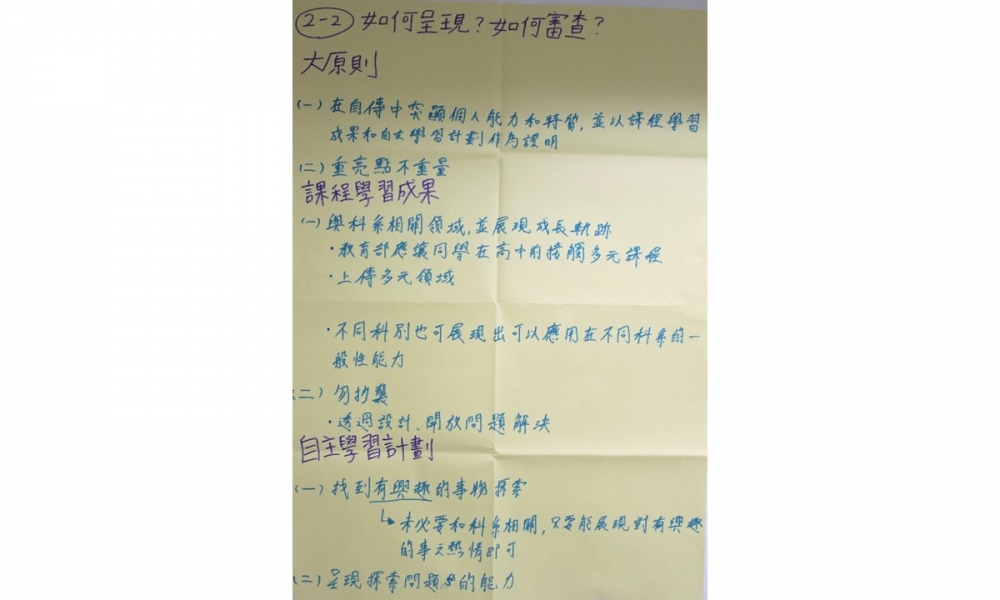 2-2 如何呈現？如何審查？
大原則
(一) 在自傳中突顯個人能力和特質，並以課程學習
成果和自主學習計劃作為證明
(二) 重亮點不重量
課程學習成果
(一) 與科系相關領域，並展現成長軌跡
・教育部應讓同學在高中前接觸多元課程
・上傳多元領域
・不同科別也可展現出可以應用在不同科系的一
般性能力
(二) 勿抄襲
・透過設計、開放問題解決
自主學習計劃
(一) 找到有興趣的事物探索
↳ 未必要和科系相關，只要能展現對有興趣
的事之熱情即可
(二) 呈現探索問題的能力